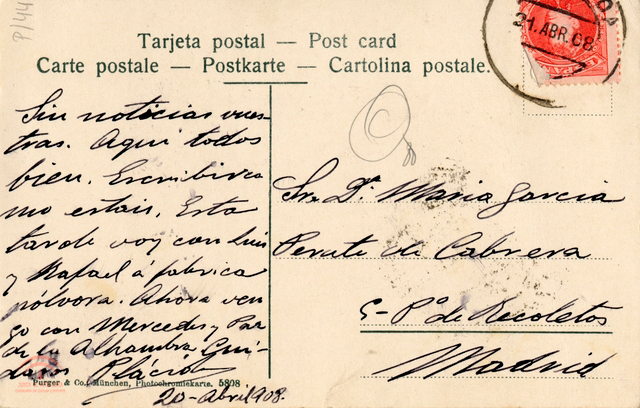 P/44
Tarjeta postal — Post card
Carte postale — Postkarte — Cartolina postale.
21.ABR.08
Sin noticias vues-
tras. Aquí todos
bien. Escribir
estais. Esta
tarde voy con Luis
y Rafael á fabrica
pólvora. Ahora ven-
go con Mercedes y Paz
de la Alhambra. Cui-
daros Plácido
20-Abril 908.
Purger & Co., München, Photochromiekarte. 5808
Sra. Dª Maria Garcia
de Cabrera
Pº de Recoletos
Madrid